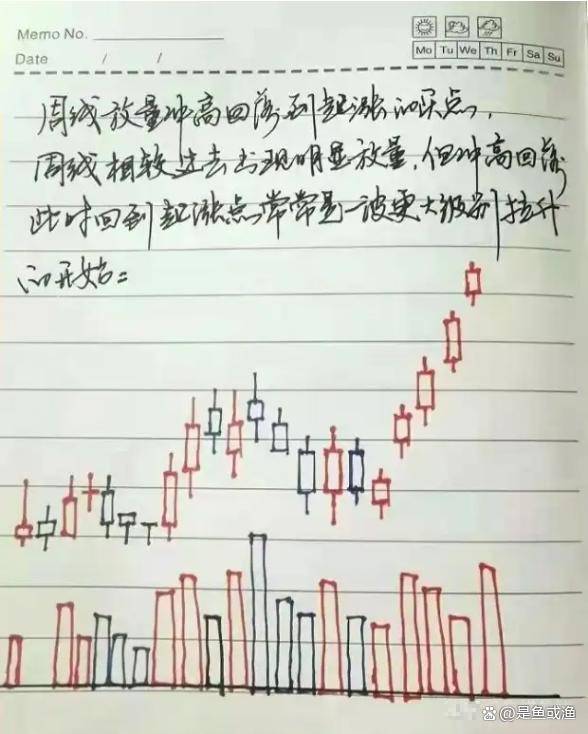 Memo No.
Date / /
Mo Tu We Th Fr Sa Su
周线放量冲高回落到起涨的买点,
周线相较过去出现明显放量,但冲高回落
此时回到起涨点,常常是一波更大级别拉升
的开始:
@是鱼或渔